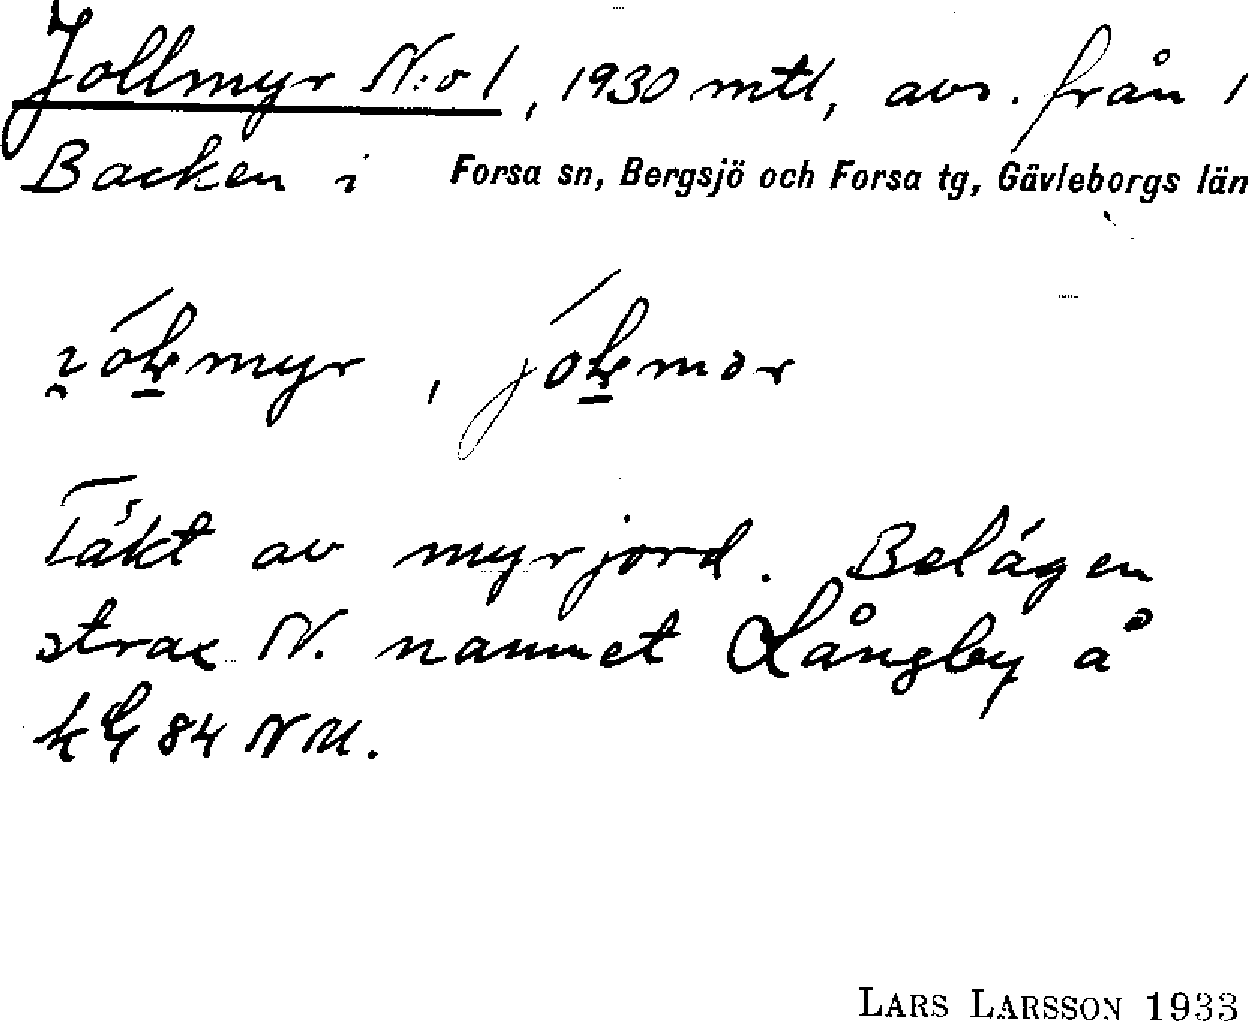 Jollmyr N:o 1, 1930 mtl, avs. från 1
Backen i Forsa sn, Bergsjö och Forsa tg, Gävleborgs län
Täkt av myrjord. Belägen
strax N. namnet Långby å
84 NU.
LARS LARSSON 1933